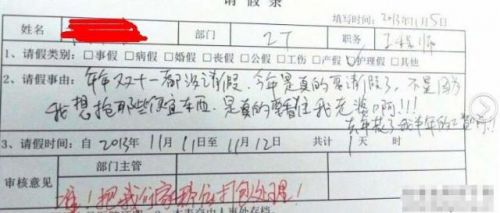 请假条
填写时间：2013年11月5日
姓名 部门 IT 职务 工程师
1、请假类别：□事假 □病假 □婚假 □丧假 □公假 □工伤 □产假 □护理假 □其他
2、请假事由：年年双十一都没请假，今年是真的要请假了，不是因为
我想抢那些便宜东西，是真的要看住我老婆啊!!!
去年花了我半年的工资啊!!
3、请假时间：自 2013 年 11 月 11 日至 11 月 12 日 共计 1 天 时
部门主管
审核意见
准！把我们家那位打包处理！